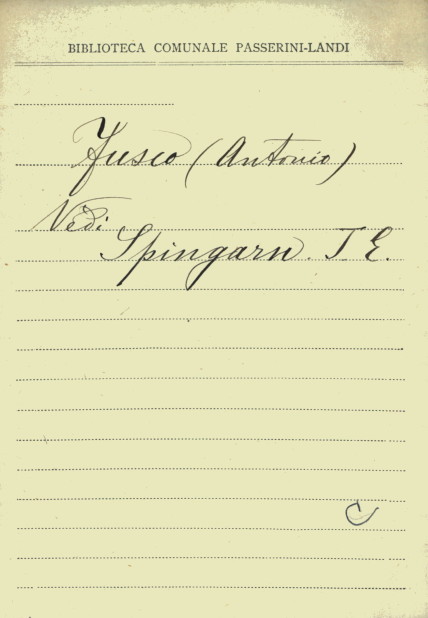 BIBLIOTECA COMUNALE PASSERINI-LANDI
Fusco (Antonio)
Vedi:
Spingarn. J. E.